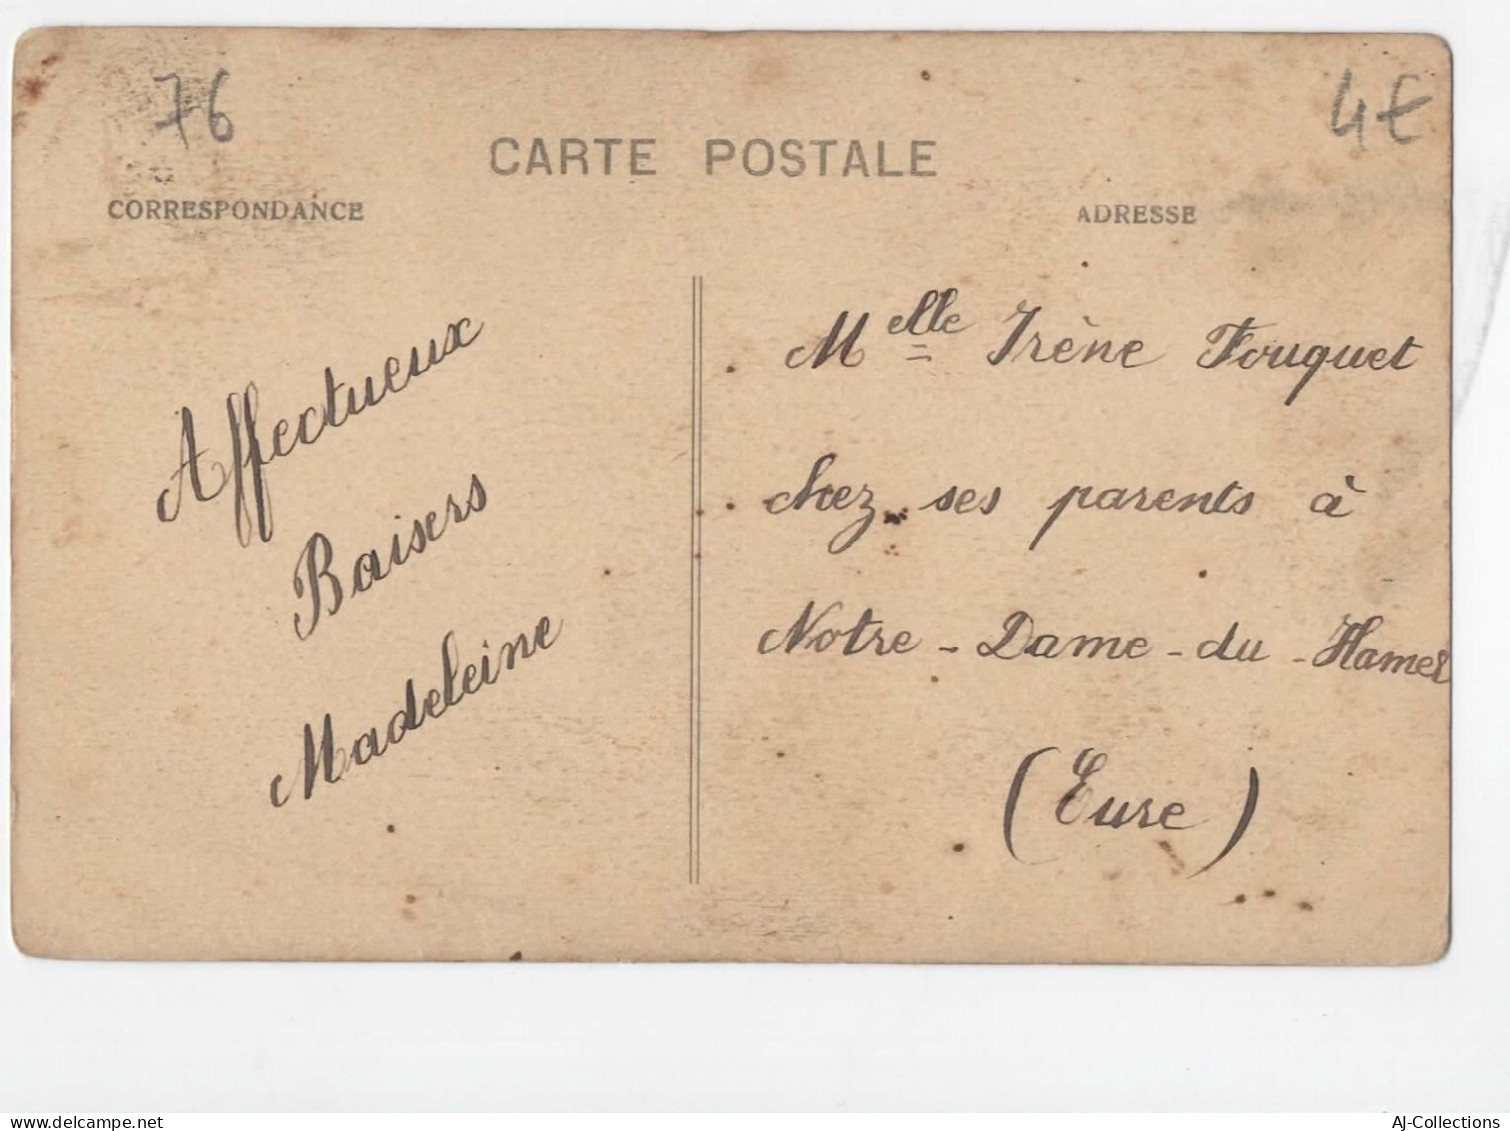 76
4€
CARTE POSTALE
CORRESPONDANCE
ADRESSE
Affectueux
Baisers
Madeleine
Melle Irène Fouquet
chez ses parents à
Notre-Dame-du-Hamel
(Eure)
www.delcampe.net
AJ-Collections